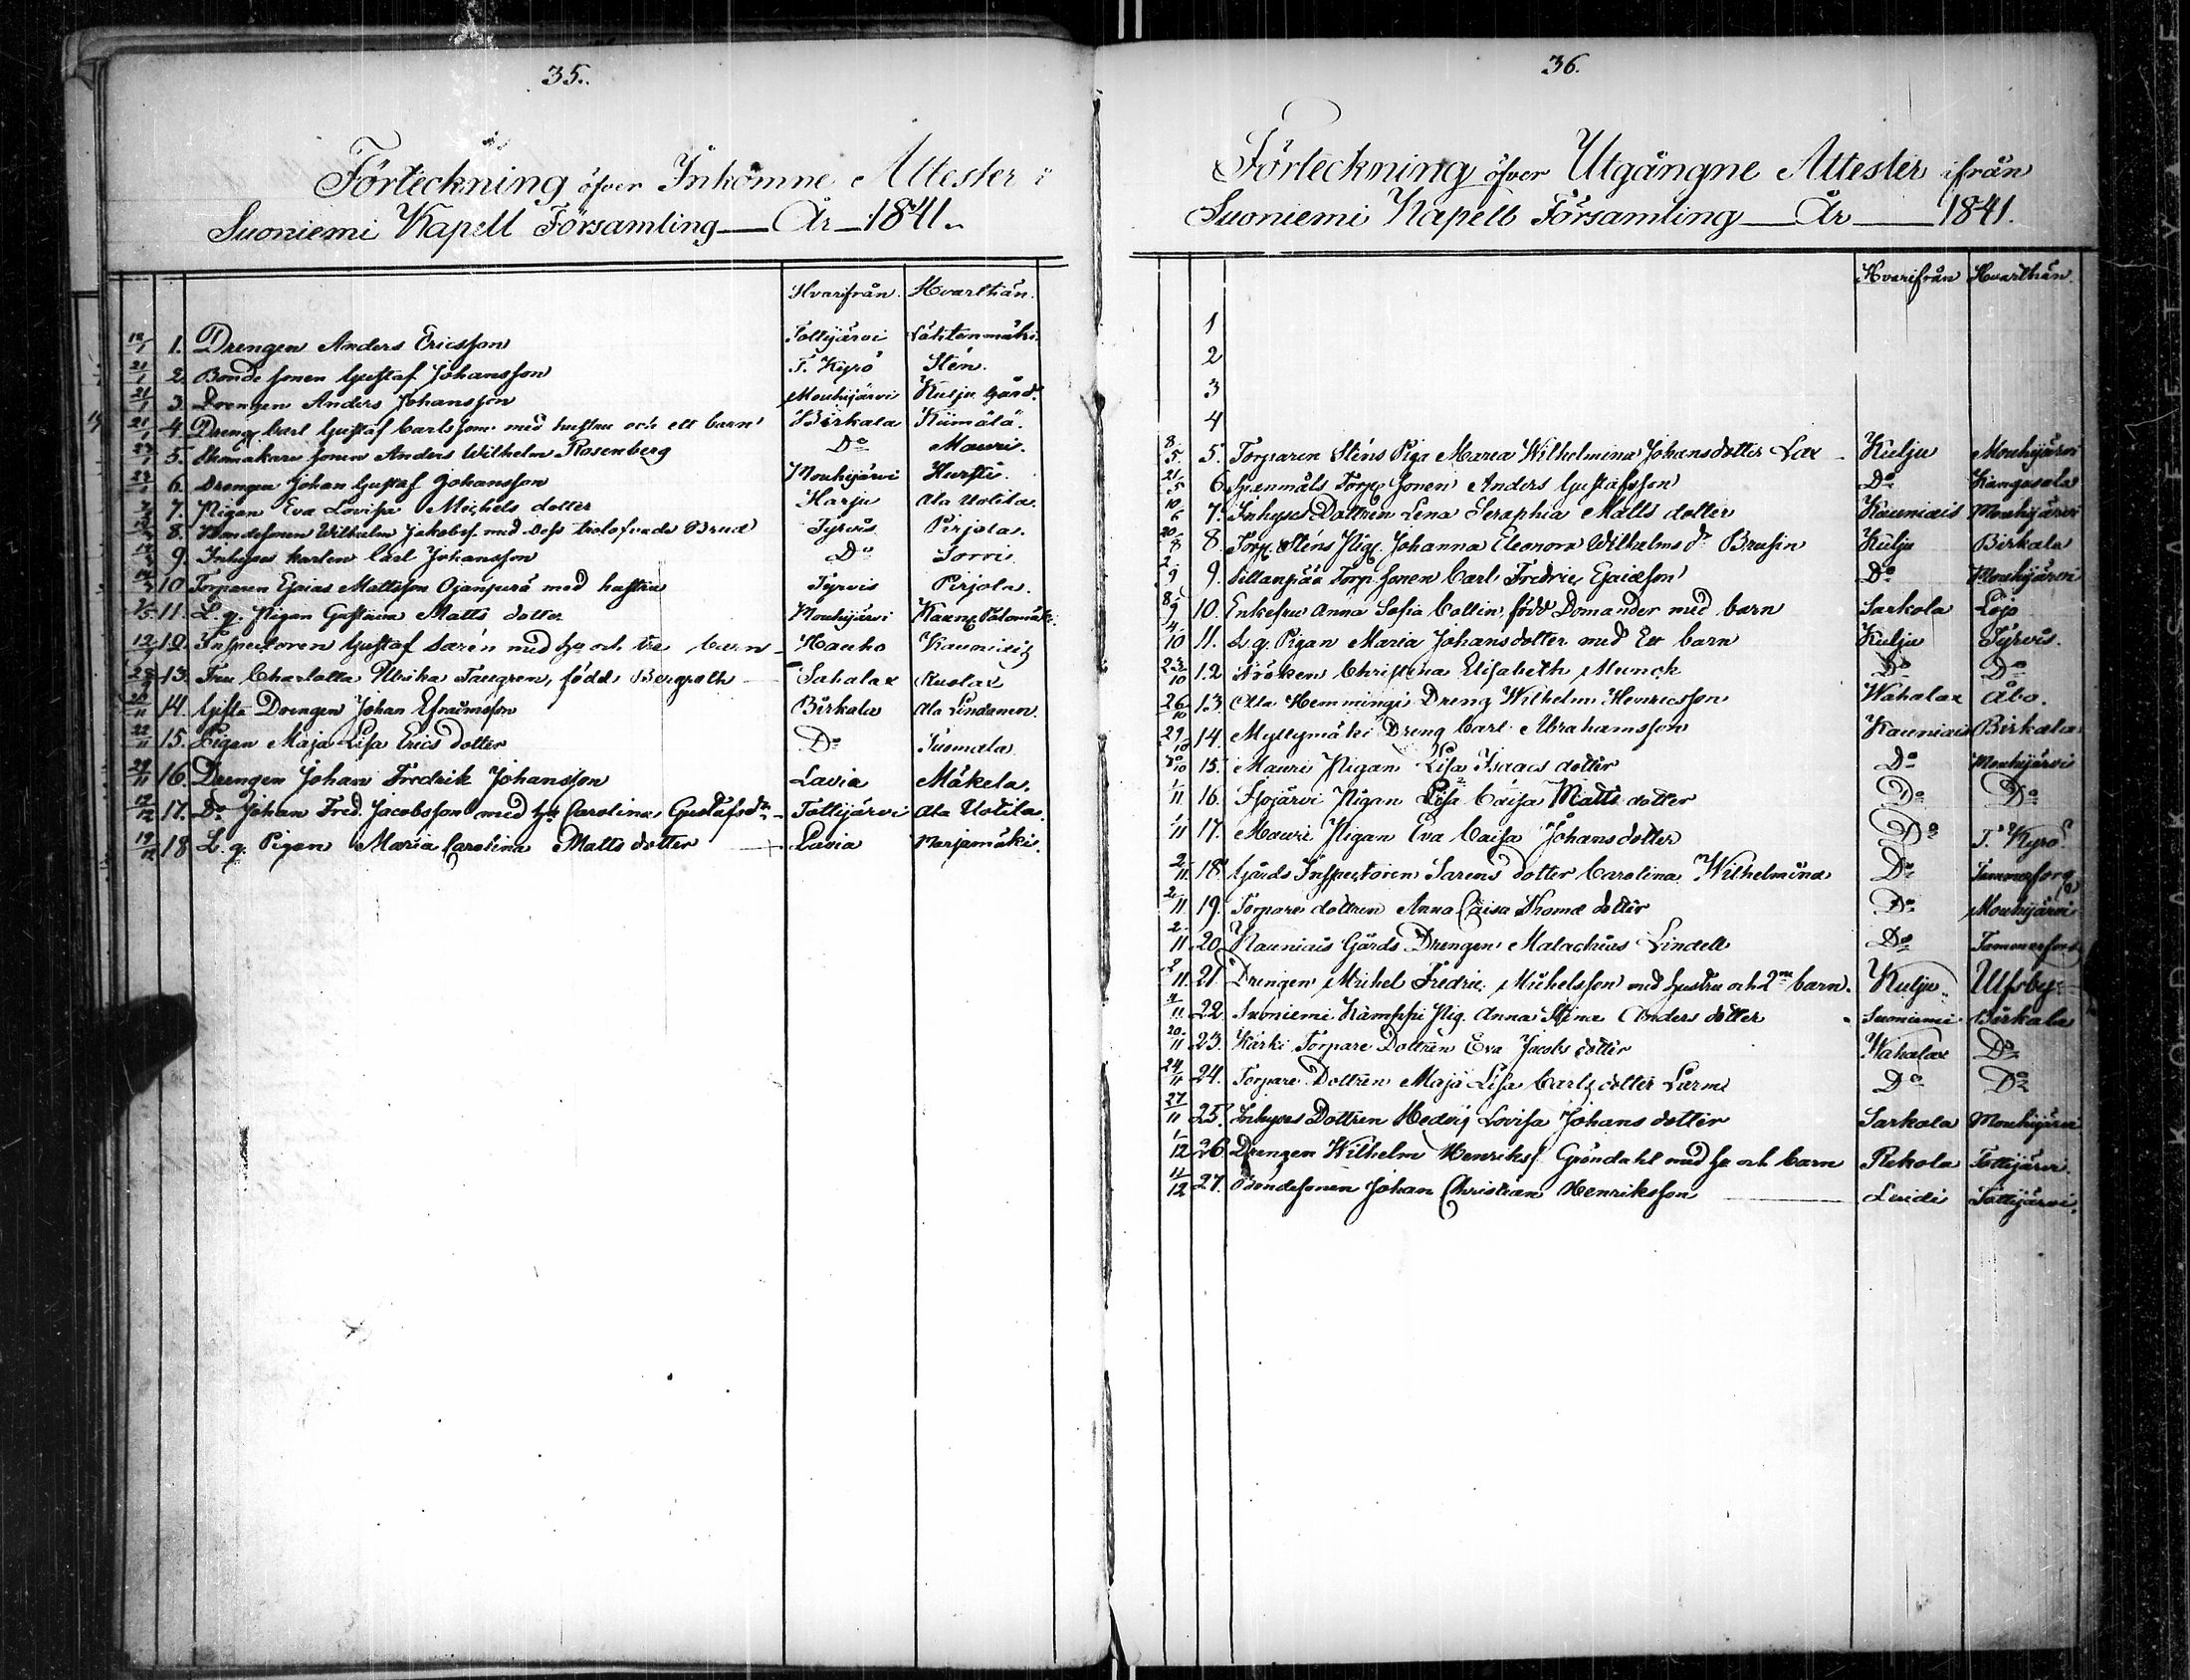 35.
Förteckning öfver Inkomne Attester i
Suoniemi Kapell Församling — År — 1841.
Hvarifrån. Hvarthän.
12/1 1. Drengen Anders Ericsson Tottijärvi Lähtenmäki.
21/1 2. Bonde sonen Gustaf Johansson T. Kyrö Sten.
21/1 3. Drengen Anders Johansson Mouhijärvi Kulju Gård.
21/1 4. Dreng. Carl Gustaf Carlsson med hustru och ett barn Birkala Kiimälä.
23/1 5. Skomakare sonen Anders Wilhelm Rosenberg Do Mauri.
6. Drengen Johan Gustaf Johansson Mouhijärvi Hursti.
7. Pigan Eva Lovisa Michels dotter Harju Ala Uotila.
8. Bondesonen Wilhelm Jakobss. med dess trolofvade Brud Tyrvis Pirjola.
9. Inhyses karlen Carl Johansson Do Sorri.
10 Torparen Esaias Mattsson Ojanperä med hustru Tyrvis Pirjola.
11. L. q. Pigan Gustava Matts dotter Mouhijärvi
12. Inspectoren Gustaf Saren med hu och tre barn Hauho Kauniais
13. Fru Charlotta Ulrika Taugren, född Bergroth Sahalax Kuolax
14. Gifta Drengen Johan Efraimsson Birkala Ala Lindanen.
22/11 15. Pigan Maja Lisa Erics dotter Do Tuomala.
29/11 16. Drengen Johan Fredrik Johansson Lavia Mäkela.
12/12 17. Do Johan Fred. Jacobsson med hu Carolina Gustafsdr Tottijärvi Ala Uotila.
19/12 18 L. q. Pigan Maria Carolina Matts dotter Lavia Marjamäki.
36.
Förteckning öfver Utgångne Attester ifrån
Suoniemi Kapell Församling — År — 1841.
Hvarifrån Hvarthän.
1
2
3
4
8/5 5. Torparen Sténs Piga Maria Wilhelmina Johansdotter Lax Kulju Mouhijärvi
21/5 6. Spenmäls Torp. sonen Anders Gustafsson Do Kangasala
10/6 7. Inhyses Dottren Lena Seraphia Matts dotter Kauniais Mouhijärvi
20/8 8. Torp. Sténs Pig. Johanna Eleonora Wilhelms dr Brusin Kulju Birkala
2/9 9. Sillanpää Torp. sonen Carl Fredric Esaiæson Do Mouhijärvi
8/9 10. Enkefru Anna Sofia Collin, född Domander med barn Sarkola Lojo
4/10 11. L. q. Pigan Maria Johansdotter med Ett barn Kulju Tyrvis.
23/10 12 Fröken Christina Elisabeth Munck Do Do
26/10 13. Ala Hemmingi Dreng Wilhelm Henricsson Wahalax Åbo.
29/10 14. Myllymäki Dreng Carl Abrahamsson Kauniais Birkala
30/10 15. Mauri Pigan Lisa Isaacs dotter Do Mouhijärvi
1/11 16. Isojärvi Pigan Lisa Caisa Matts dotter Do Do
1/11 17. Mauri Pigan Eva Caisa Johans dotter Do T. Kyrö
2/11 18. Gårds Inspectoren Sarens dotter Carolina Wilhelmina Do Tammerfors
2/11 19. Torpare dottren Anna Caisa Thomæ dotter Do Mouhijärvi
2/11 20. Kauniais Gårds Drengen Malachias Lindell Do Tammerfors
2/11 21 Drengen Michel Fredric Michelsson med hustru och 2ne barn. Kulju Ulfsby
4/11 22. Suoniemi Kämppi Pig. Anna Stina Anders dotter Suoniemi Birkala
20/11 23. Kärki Torpare Dottren Eva Jacobs dotter Wahalax Do
24/11 24. Torpare Dottren Maja Lisa Carls dotter Lurmi Do Do
27/11 25. Inhyses Dottren Hedvig Lovisa Johans dotter Sarkola Mouhijärvi
1/12 26. Drengen Wilhelm Henrikss. Gröndahl med hu och barn Rekola Tottijärvi.
11/12 27. Bondesonen Johan Christian Henriksson Luidis Tottijärvi.